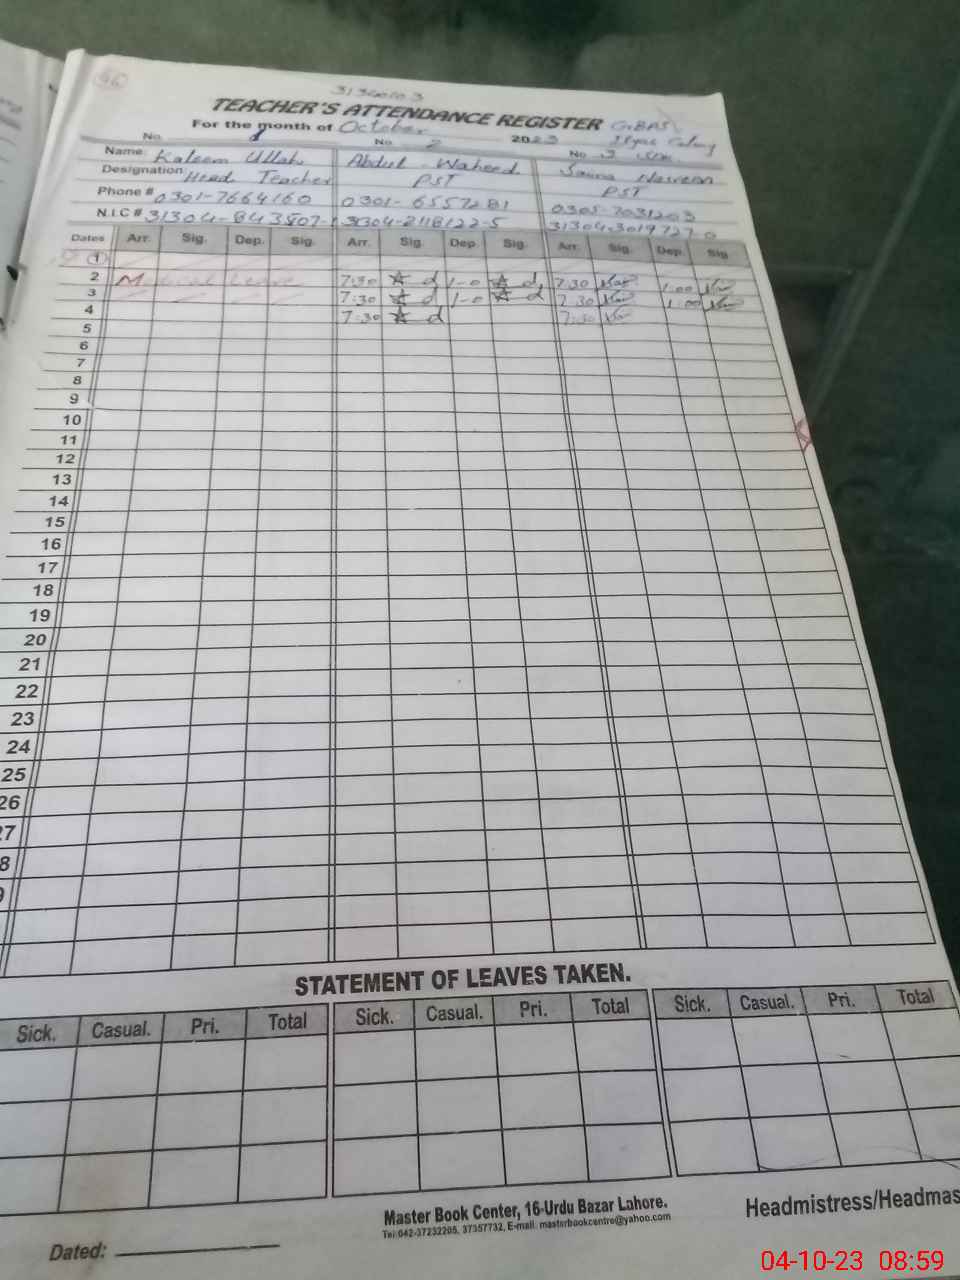 31340103
TEACHER'S ATTENDANCE REGISTER
For the month of October 2023
No. 1 No. 2 No. 3
Name: Kaleem Ullah Abdul Waheed
Designation Head Teacher PST PST
Phone # 0301-7664160 0301-6557281 0305-7031203
N.I.C # 31304-2118122-5
Dates Arr. Sig. Dep. Sig. Arr. Sig. Dep. Sig. Arr. Sig. Dep. Sig.
1
2 Medical Leave 7:30 1-0 7:30 1:00
3 7:30 1-0 7:30 1:00
4 7:30 7:30
5
6
7
8
9
10
11
12
13
14
15
16
17
18
19
20
21
22
23
24
25
26
27
8
9
STATEMENT OF LEAVES TAKEN.
Sick. Casual. Pri. Total Sick. Casual. Pri. Total Sick. Casual. Pri. Total
Master Book Center, 16-Urdu Bazar Lahore.
Tel:042-37232205, 37357732, E-mail. masterbookcentre@yahoo.com
Headmistress/Headmas
Dated:
04-10-23 08:59